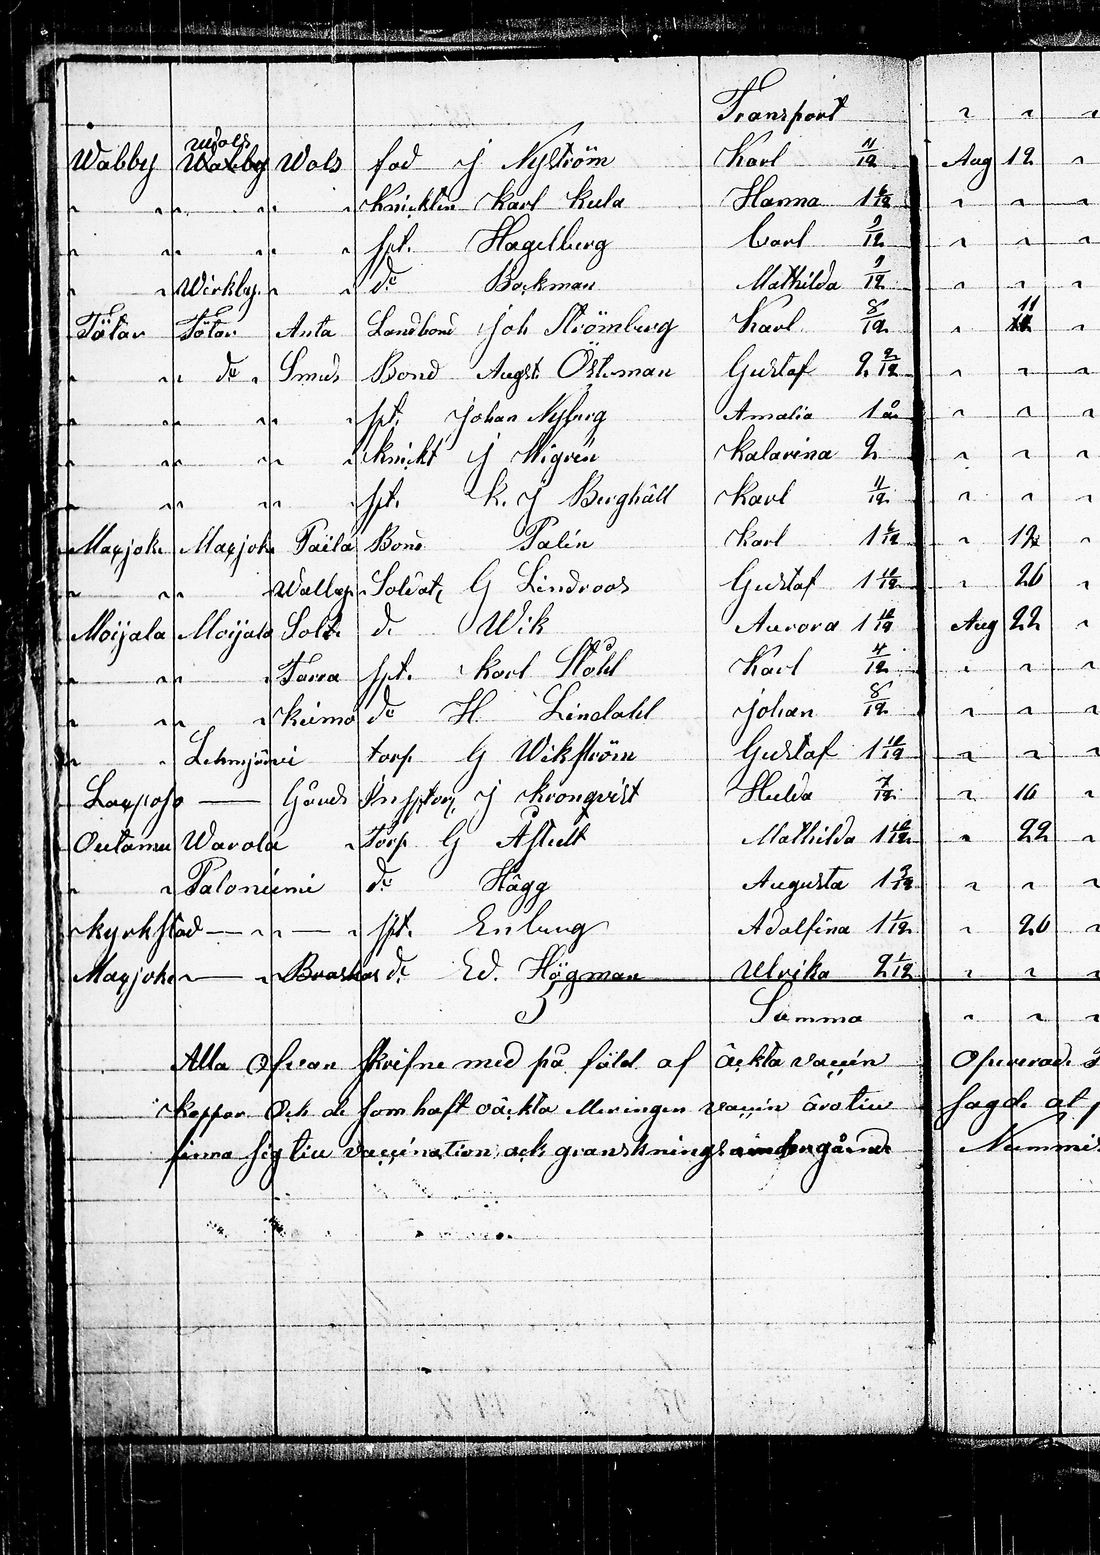 Transport " " "
Wåbby Wåbby Wols fad J Nyström Karl 11/12 Aug 12 "
" " " " Knickten Karl Kula Hanna 1 6/12 " " "
" " " " spt. Hagelberg Carl 9/12 " " "
" " Wirkby " " do Bockman Mathilda 9/12 " " "
Tötar Tötar Anta Landbond Joh Strömberg Karl 8/12 " 11 "
" " do " Smeds Bond Augst Österman Gustaf 2 2/12 " " "
" " " " spt. Johan Nyberg Amalia 1 år " " "
" " " " Knickt J Wigren Katarina 2 " " "
" " " " spt. K. J Berghäll Karl 11/12 " " "
Maxjok Maxjok Paila Bond Palin Karl 1 6/12 " 12 "
" " " Soldat G Lindroos Gustaf 1 10/12 " 26 "
Moijala Moijala Solt do Wik Aurora 1 10/12 Aug 22 "
" " " Tarra spt. Karl Ståhl Karl 4/12 " " "
" " " Keimo do H. Lindahl Johan 8/12 " " "
" " Lehmjärvi torp G Wikström Gustaf 1 10/12 " " "
— Gårds J Kronqvist Hulda 7/12 " 16 "
Outamu Warola " Torp G Åstedt Mathilda 1 10/12 " 22 "
" " Paloniemi do Hägg Augusta 1 3/12 " " "
Kyrkstad — " — " spt. Enberg Adolfina 1 1/12 " 26 "
Maxjok " — " Braskas do Ed. Högman Ulrika 2 1/12 " " "
Summa " " "
Alla Ofvan skrifne med på föld af äckta vaccin Opererade
koppor Och de som haft oäckta Meringen vaccin äro tiu sagde at
finna sig tiu vaccination och gransknings Nummis